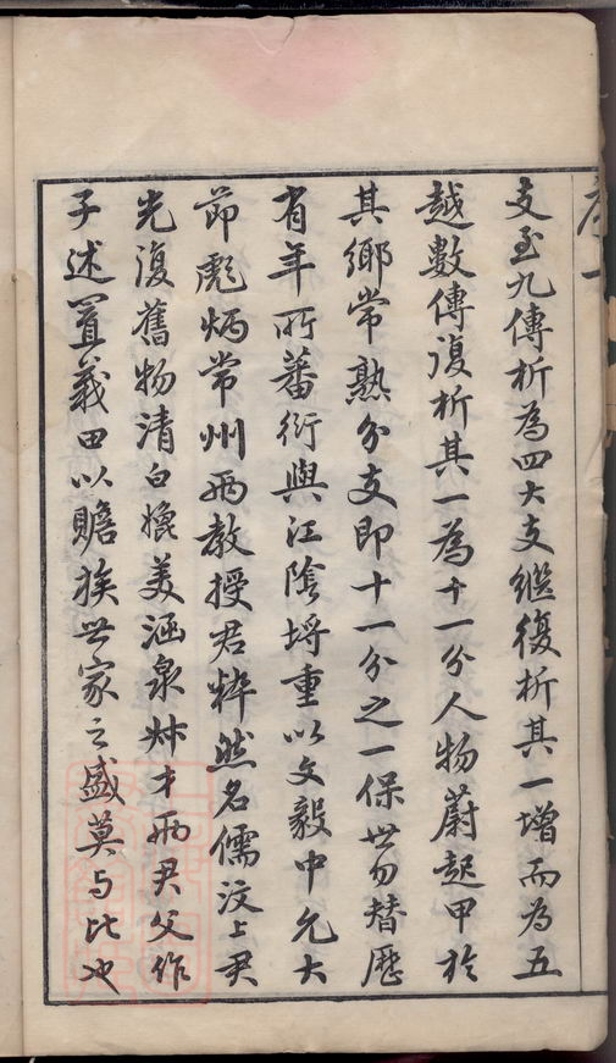 支至九傳析為四大支繼復析其一增而為五
越數傳復析其一為十一分人物蔚起甲於
其鄉常熟分支即十一分之一保世勿替歷
有年所蕃衍與江陰埒重以文毅中允大
節彪炳常州兩教授君粹然名儒汶上君
光復舊物清白媲美涵泉艸才兩君父作
子述置義田以贍族世家之盛莫与比也